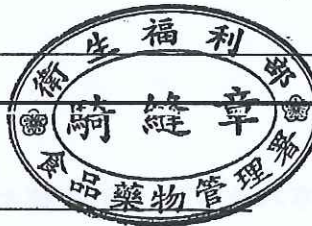 衛生福利部
騎縫章
食品藥物管理署